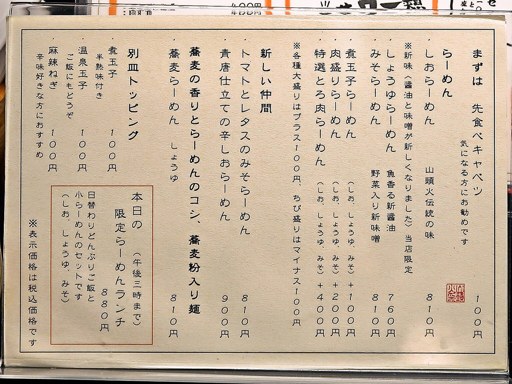 まずは　先食べキャベツ　100円
気になる方にお勧めです
らーめん
・しおらーめん　山頭火伝統の味　810円
※新味(醤油と味噌が新しくなりました)当店限定
・しょうゆらーめん　魚香る新醤油　760円
・みそらーめん　野菜入り新味噌　810円
煮玉子らーめん　(しお、しょうゆ、みそ)+100円
肉盛りらーめん　(しお、しょうゆ、みそ)+200円
特選とろ肉らーめん　(しお、しょうゆ、みそ)+400円
※各種大盛りはプラス100円、ちび盛りはマイナス100円
新しい仲間
・トマトとレタスのみそらーめん　810円
・青唐仕立ての辛しおらーめん　900円
蕎麦の香りとらーめんのコシ、蕎麦粉入り麺
・蕎麦らーめん　しょうゆ　810円
別皿トッピング
・煮玉子　100円
半熟味付き
・温泉玉子　100円
ご飯にもどうぞ
・麻辣ねぎ　100円
辛味好きな方におすすめ
本日の　(午後三時まで)
限定らーめんランチ
880円
日替わりどんぶりご飯と
小らーめんのセットです
(しお、しょうゆ、みそ)
※表示価格は税込価格です